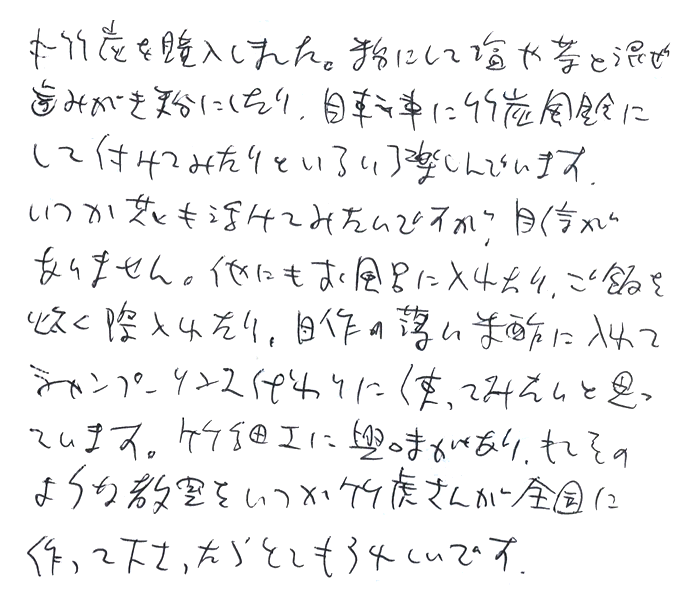 竹炭を購入しました。粉にして塩や茶と混ぜ
歯みがき粉にしたり、自転車に竹炭風鈴に
して付けてみたりといろいろ楽しんでいます。
いつか花も活けてみたいですが、自信が
ありません。他にもお風呂に入れたり、ご飯を
炊く際入れたり、自作の薄い米酢に入れて
シャンプーリンス代わりに使ってみたいと思っ
ています。竹細工に興味があり、もしその
ような教室をいつか竹虎さんが全国に
作って下さったらとてもうれしいです。